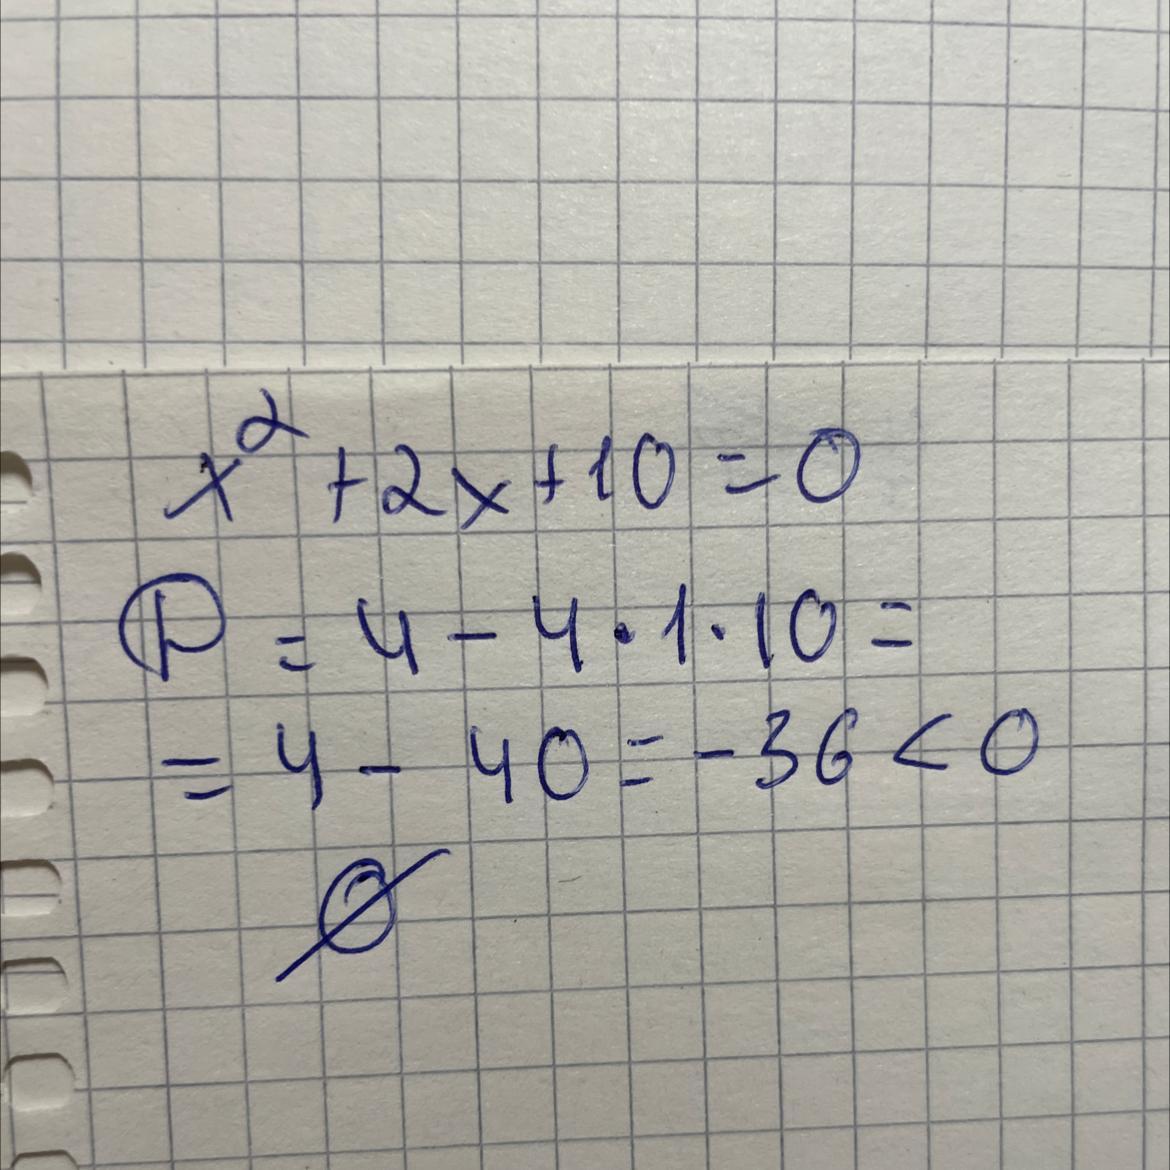 x² + 2x + 10 = 0
D = 4 - 4 · 1 · 10 =
= 4 - 40 = -36 < 0
∅